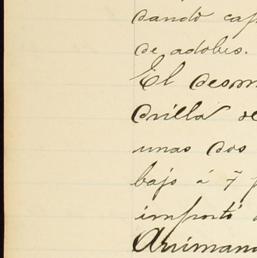 dando cap
de adobes.
El desm
drilla se
unas dos
bajo á 7 p
importó
Arriman